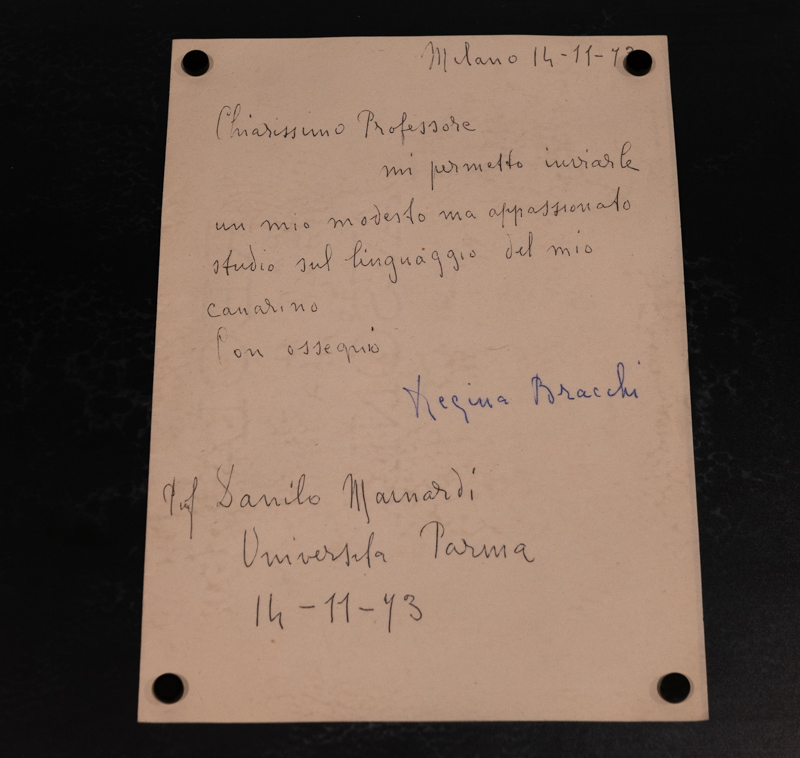 Milano 14-11-73
Chiarissimo Professore
mi permetto inviarle
un mio modesto ma appassionato
studio sul linguaggio del mio
canarino
Con ossequio
Regina Bracchi
Prof Danilo Mainardi
Università Parma
14-11-73